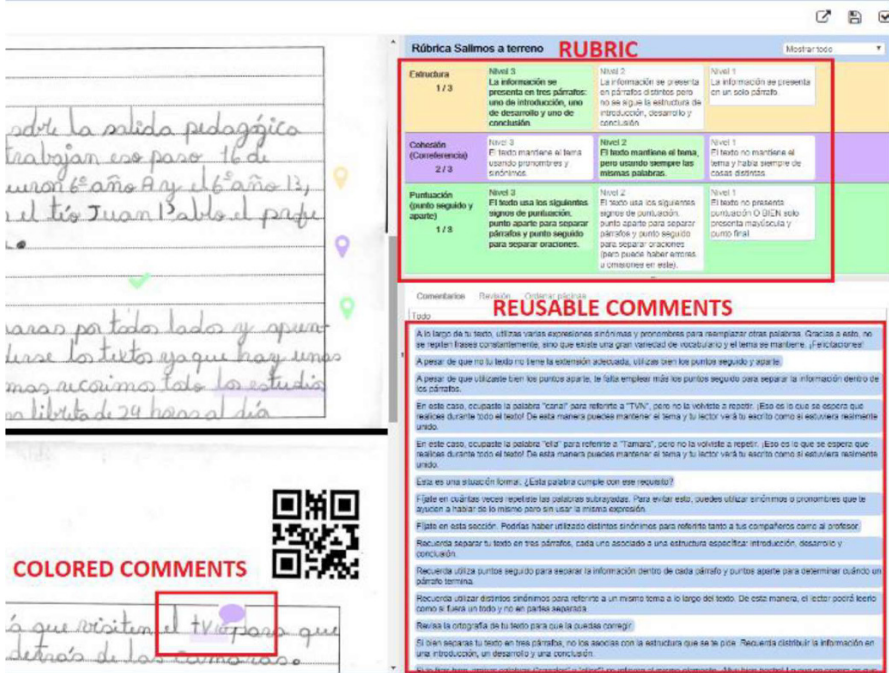 sobre la salida pedagógica
trabajan eso paso 16 de
6º año A y el 6º año B,
el tío Juan Pablo el profe
por todos lados y apun-
los textos ya que hay unas
todo los estudio
libreta de 24 horas al día
COLORED COMMENTS
que visiten el tv para que
detrás de las camaras.
Rúbrica Salimos a terreno
RUBRIC
Mostrar todo
Estructura
1 / 3
Nivel 3
La información se
presenta en tres párrafos:
uno de introducción, uno
de desarrollo y uno de
conclusión.
Nivel 2
La información se presenta
en párrafos distintos pero
no se sigue la estructura de
introducción, desarrollo y
conclusión.
Nivel 1
La información se presenta
en un solo párrafo.
Cohesión
(Correferencia)
2 / 3
Nivel 3
El texto mantiene el tema
usando pronombres y
sinónimos.
Nivel 2
El texto mantiene el tema,
pero usando siempre las
mismas palabras.
Nivel 1
El texto no mantiene el
tema y habla siempre de
cosas distintas.
Puntuación
(punto seguido y
aparte)
1 / 3
Nivel 3
El texto usa los siguientes
signos de puntuación:
punto aparte para separar
párrafos y punto seguido
para separar oraciones.
Nivel 2
El texto usa los siguientes
signos de puntuación:
punto aparte para separar
párrafos y punto seguido
para separar oraciones
(pero puede haber errores
u omisiones en este).
Nivel 1
El texto no presenta
puntuación O BIEN solo
presenta mayúscula y
punto final.
Comentarios
Revisión
Ordenar páginas
REUSABLE COMMENTS
Todo
A lo largo de tu texto, utilizas varias expresiones sinónimas y pronombres para reemplazar otras palabras. Gracias a esto, no
se repiten frases constantemente, sino que existe una gran variedad de vocabulario y el tema se mantiene. ¡Felicitaciones!
A pesar de que no tu texto no tiene la extensión adecuada, utilizas bien los puntos seguido y aparte.
A pesar de que utilizaste bien los puntos aparte, te falta emplear más los puntos seguido para separar la información dentro de
los párrafos.
En este caso, ocupaste la palabra "canal" para referirte a "TVN", pero no la volviste a repetir. ¡Eso es lo que se espera que
realices durante todo el texto! De esta manera puedes mantener el tema y tu lector verá tu escrito como si estuviera realmente
unido.
En este caso, ocupaste la palabra "ella" para referirte a "Tamara", pero no la volviste a repetir. ¡Eso es lo que se espera que
realices durante todo el texto! De esta manera puedes mantener el tema y tu lector verá tu escrito como si estuviera realmente
unido.
Esta es una situación formal. ¿Esta palabra cumple con ese requisito?
Fíjate en cuántas veces repetiste las palabras subrayadas. Para evitar esto, puedes utilizar sinónimos o pronombres que te
ayuden a hablar de lo mismo pero sin usar la misma expresión.
Fíjate en esta sección. Podrías haber utilizado distintos sinónimos para referirte tanto a tus compañeros como al profesor.
Recuerda separar tu texto en tres párrafos, cada uno asociado a una estructura específica: introducción, desarrollo y
conclusión.
Recuerda utiliza puntos seguido para separar la información dentro de cada párrafo y puntos aparte para determinar cuándo un
párrafo termina.
Recuerda utilizar distintos sinónimos para referirte a un mismo tema a lo largo del texto. De esta manera, el lector podrá leerlo
como si fuera un todo y no en partes separada.
Revisa la ortografía de tu texto para que la puedas corregir.
Si bien separas tu texto en tres párrafos, no los asocias con la estructura que se te pide. Recuerda distribuir la información en
una introducción, un desarrollo y una conclusión.